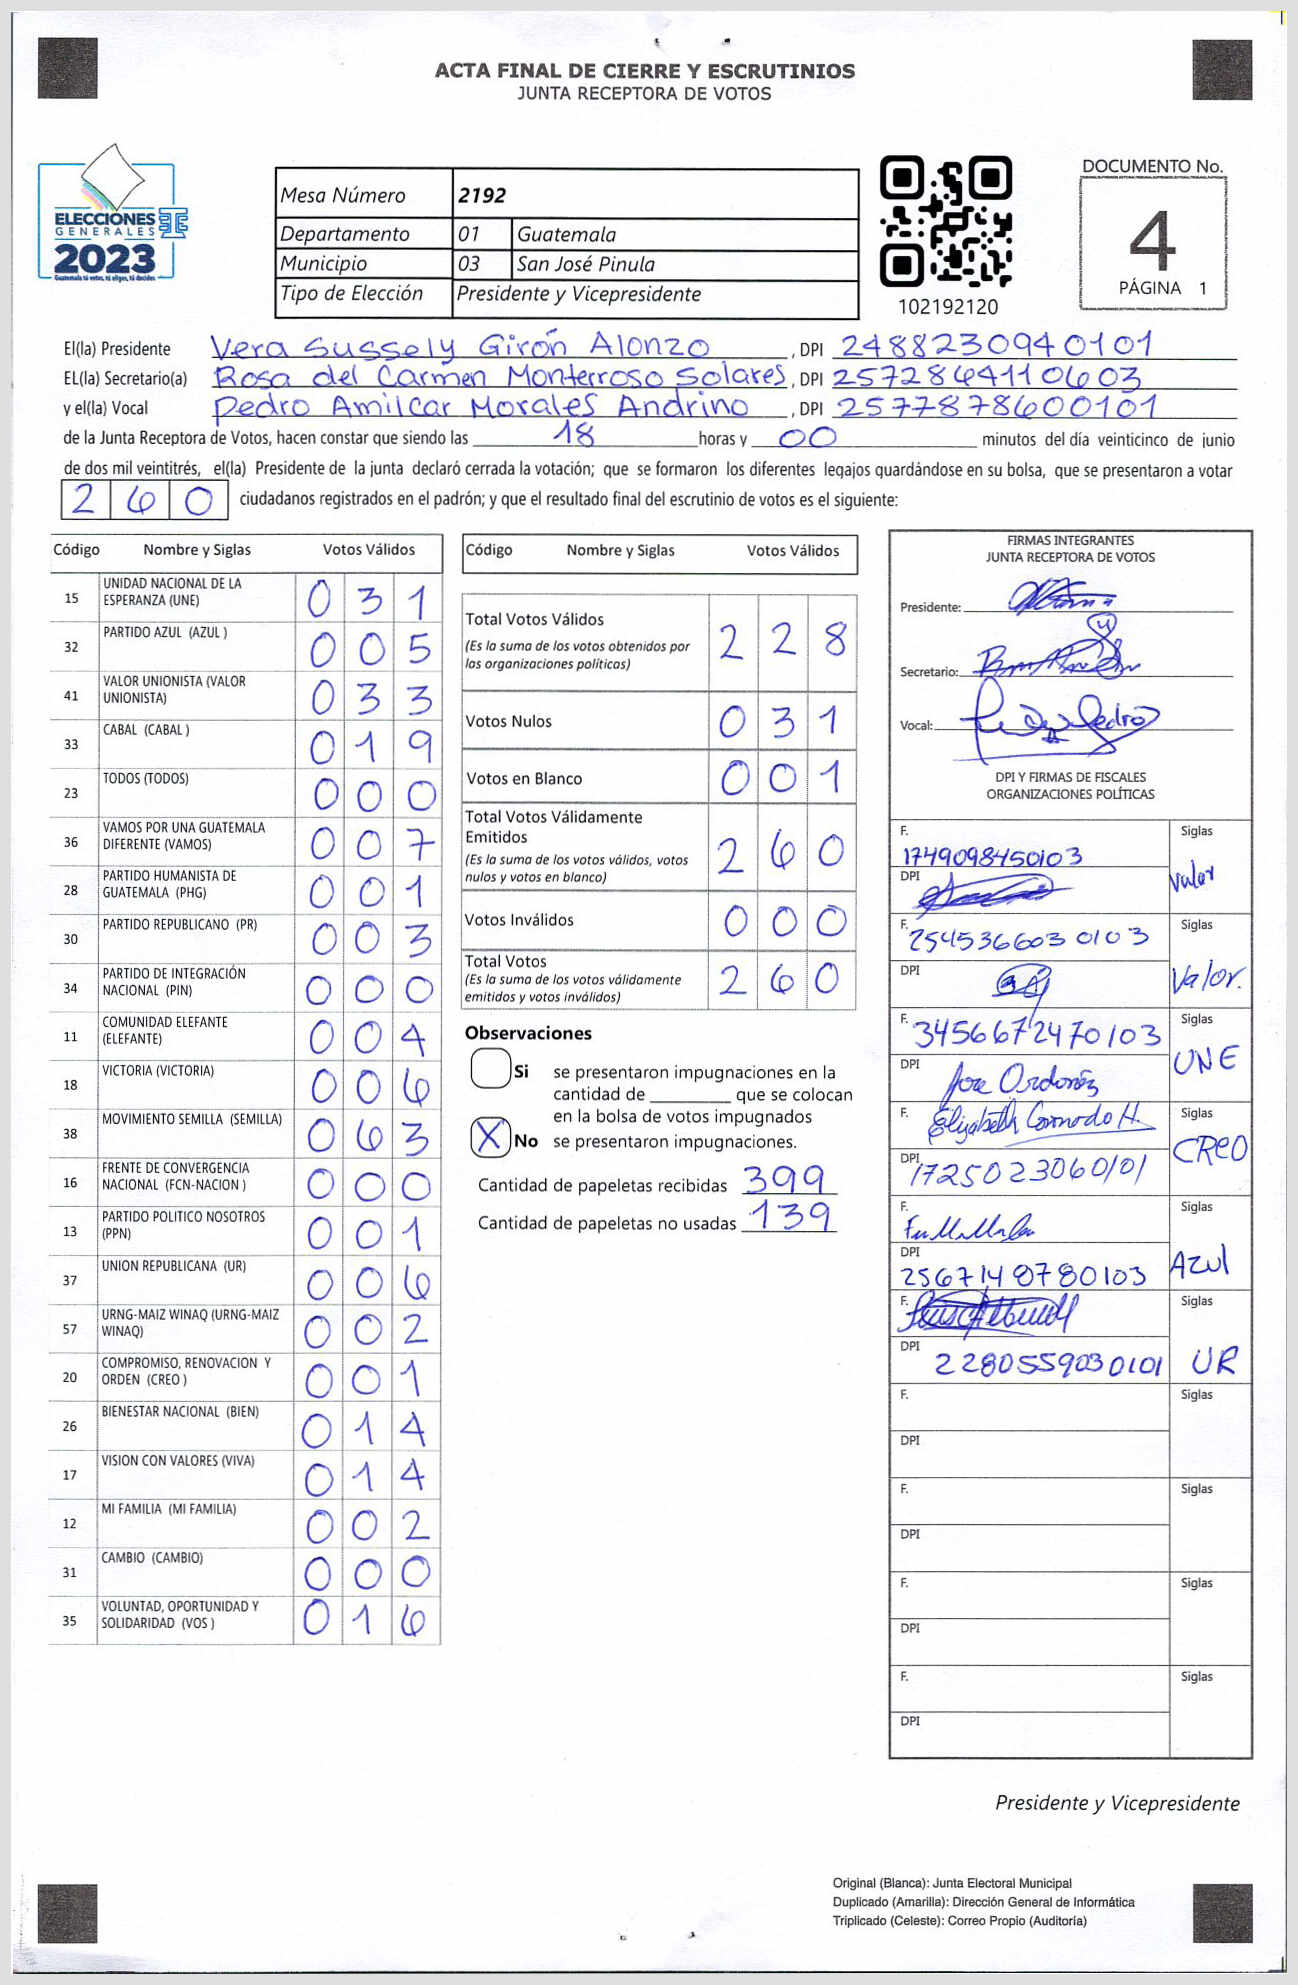 ACTA FINAL DE CIERRE Y ESCRUTINIOS
JUNTA RECEPTORA DE VOTOS
ELECCIONES
GENERALES
2023
Mesa Número 2192
Departamento 01 Guatemala
Municipio 03 San José Pinula
Tipo de Elección Presidente y Vicepresidente
102192120
DOCUMENTO No.
4
PÁGINA 1
El(la) Presidente Vera Sussely Girón Alonzo, DPI 2488230940101
EL(la) Secretario(a) Rosa del Carmen Monterroso Solares, DPI 2572864110603
y el(la) Vocal Pedro Amilcar Morales Andrino, DPI 2577878600101
de la Junta Receptora de Votos, hacen constar que siendo las 18 horas y 00 minutos del día veinticinco de junio
de dos mil veintitrés, el(la) Presidente de la junta declaró cerrada la votación; que se formaron los diferentes legajos guardándose en su bolsa, que se presentaron a votar
260 ciudadanos registrados en el padrón; y que el resultado final del escrutinio de votos es el siguiente:
Código Nombre y Siglas Votos Válidos
15 UNIDAD NACIONAL DE LA ESPERANZA (UNE) 031
32 PARTIDO AZUL (AZUL ) 005
41 VALOR UNIONISTA (VALOR UNIONISTA) 033
33 CABAL (CABAL ) 019
23 TODOS (TODOS) 000
36 VAMOS POR UNA GUATEMALA DIFERENTE (VAMOS) 007
28 PARTIDO HUMANISTA DE GUATEMALA (PHG) 001
30 PARTIDO REPUBLICANO (PR) 003
34 PARTIDO DE INTEGRACIÓN NACIONAL (PIN) 000
11 COMUNIDAD ELEFANTE (ELEFANTE) 004
18 VICTORIA (VICTORIA) 006
38 MOVIMIENTO SEMILLA (SEMILLA) 063
16 FRENTE DE CONVERGENCIA NACIONAL (FCN-NACION ) 000
13 PARTIDO POLITICO NOSOTROS (PPN) 001
37 UNION REPUBLICANA (UR) 006
57 URNG-MAIZ WINAQ (URNG-MAIZ WINAQ) 002
20 COMPROMISO, RENOVACION Y ORDEN (CREO ) 001
26 BIENESTAR NACIONAL (BIEN) 014
17 VISION CON VALORES (VIVA) 014
12 MI FAMILIA (MI FAMILIA) 002
31 CAMBIO (CAMBIO) 000
35 VOLUNTAD, OPORTUNIDAD Y SOLIDARIDAD (VOS ) 016
Código Nombre y Siglas Votos Válidos
Total Votos Válidos 228
(Es la suma de los votos obtenidos por las organizaciones políticas)
Votos Nulos 031
Votos en Blanco 001
Total Votos Válidamente Emitidos 260
(Es la suma de los votos válidos, votos nulos y votos en blanco)
Votos Inválidos 000
Total Votos 260
(Es la suma de los votos válidamente emitidos y votos inválidos)
Observaciones
Si se presentaron impugnaciones en la
cantidad de ________ que se colocan
en la bolsa de votos impugnados
X No se presentaron impugnaciones.
Cantidad de papeletas recibidas 399
Cantidad de papeletas no usadas 139
FIRMAS INTEGRANTES
JUNTA RECEPTORA DE VOTOS
Presidente:
Secretario:
Vocal:
DPI Y FIRMAS DE FISCALES
ORGANIZACIONES POLÍTICAS
F. 1749098450103 Siglas Valor
DPI
F. 2545366030103 Siglas Valor.
DPI
F. 3456672470103 Siglas UNE
DPI Jose Ordoñez
F. Elizabeth H. Siglas CREO
DPI 1725023060101
F. Siglas Azul
DPI 2567148780103
F. Siglas UR
DPI 2280559030101
F. Siglas
DPI
F. Siglas
DPI
F. Siglas
DPI
F. Siglas
DPI
Presidente y Vicepresidente
Original (Blanca): Junta Electoral Municipal
Duplicado (Amarilla): Dirección General de Informática
Triplicado (Celeste): Correo Propio (Auditoría)